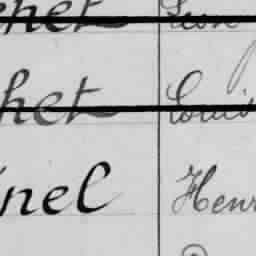 chet Léon
chet Louis
nel Henr